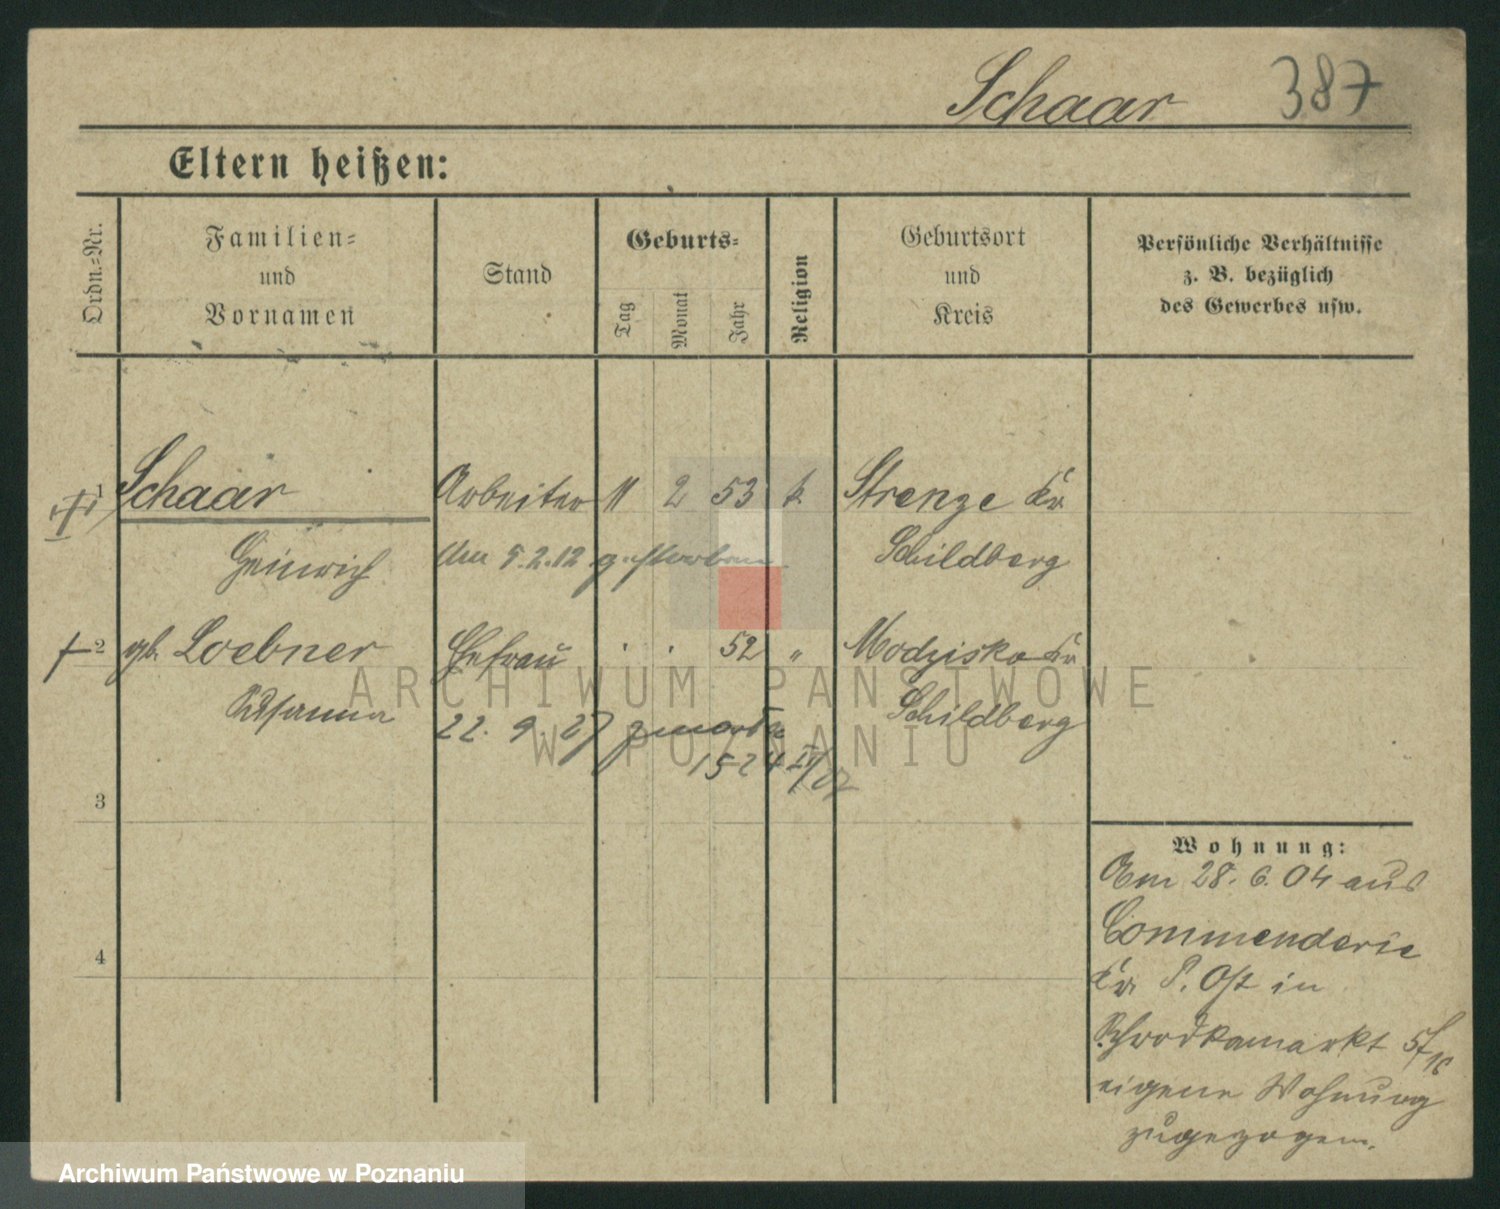 Schaar 387
Eltern heißen:
Ordn.-Nr.
Familien-
und
Vornamen
Stand
Geburts-
Tag
Monat
Jahr
Religion
Geburtsort
und
Kreis
Persönliche Verhältnisse
z. B. bezüglich
des Gewerbes usw.
1 Schaar Arbeiter 11 2 53 k. Strenze Kr.
Heinrich den 5.2.12 gestorben Schildberg
2 gb. Loebner Ehefrau . . 52 " Kr.
Susanna 22. 9. 27 zmarła Schildberg
1524 IV/27
3
4
Wohnung:
Am 28. 6. 04 aus
Commenderie
Kr. P. Ost in
Schrodkamarkt
eigene Wohnung
zugezogen.
ARCHIWUM PAŃSTWOWE
W POZNANIU
Archiwum Państwowe w Poznaniu